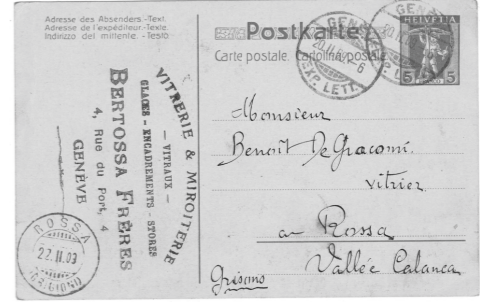 Adresse des Absenders.-Text.
Adresse de l'expéditeur.-Texte.
Indirizzo del mittente.-Testo
Postkarte
Carte postale. Cartolina postale.
GENÈVE
EXP. LETT.
GENÈVE
LETT.
HELVETIA
5 5
VITRERIE & MIROITERIE
- VITRAUX -
GLACES - ENCADREMENTS - STORES
BERTOSSA FRÈRES
4, Rue du Port, 4
GENÈVE
Monsieur
Benoît DeGiacomi
vitrier
a Rossa
Vallée Calanca
Grisons
ROSSA
22.II.09
(GRIGIONI)